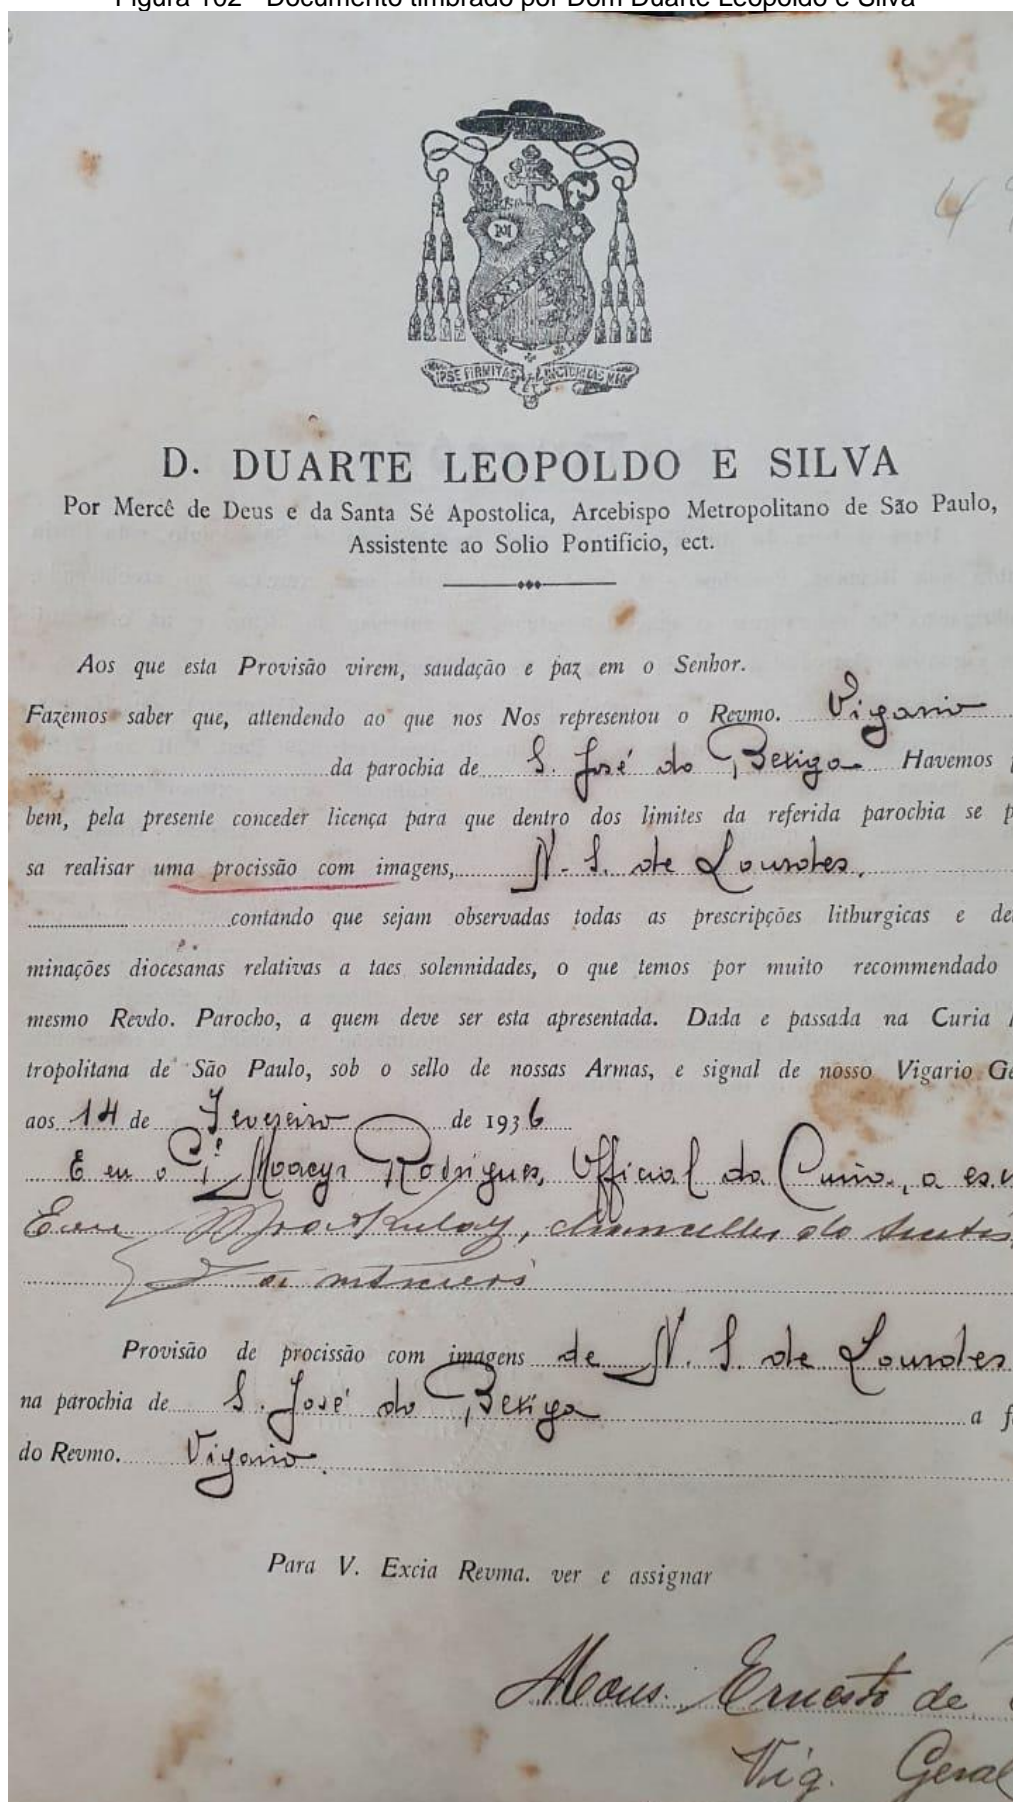 Figura 102 - Documento timbrado por Dom Duarte Leopoldo e Silva
4
IPSE FIRMITAS ET
D. DUARTE LEOPOLDO E SILVA
Por Mercê de Deus e da Santa Sé Apostolica, Arcebispo Metropolitano de São Paulo,
Assistente ao Solio Pontificio, ect.
Aos que esta Provisão virem, saudação e paz em o Senhor.
Fazemos saber que, attendendo ao que nos Nos representou o Revmo. Vigario
da parochia de S. José do Bexiga Havemos
bem, pela presente conceder licença para que dentro dos limites da referida parochia se p
sa realisar uma procissão com imagens, N. S. de Lourdes,
contando que sejam observadas todas as prescripções lithurgicas e de
minações diocesanas relativas a taes solennidades, o que temos por muito recommendado
mesmo Revdo. Parocho, a quem deve ser esta apresentada. Dada e passada na Curia
tropolitana de São Paulo, sob o sello de nossas Armas, e signal de nosso Vigario Ge
aos 14 de Fevereiro de 1936
E eu o Pe. Moacyr Rodrigues, Official da Curia, a es
Eu chanceller do
Provisão de procissão com imagens de N. S. de Lourdes
na parochia de S. José do Bexiga a f
do Revmo. Vigario.
Para V. Excia Revma. ver e assignar
Mons. Ernesto de
Vig. Geral